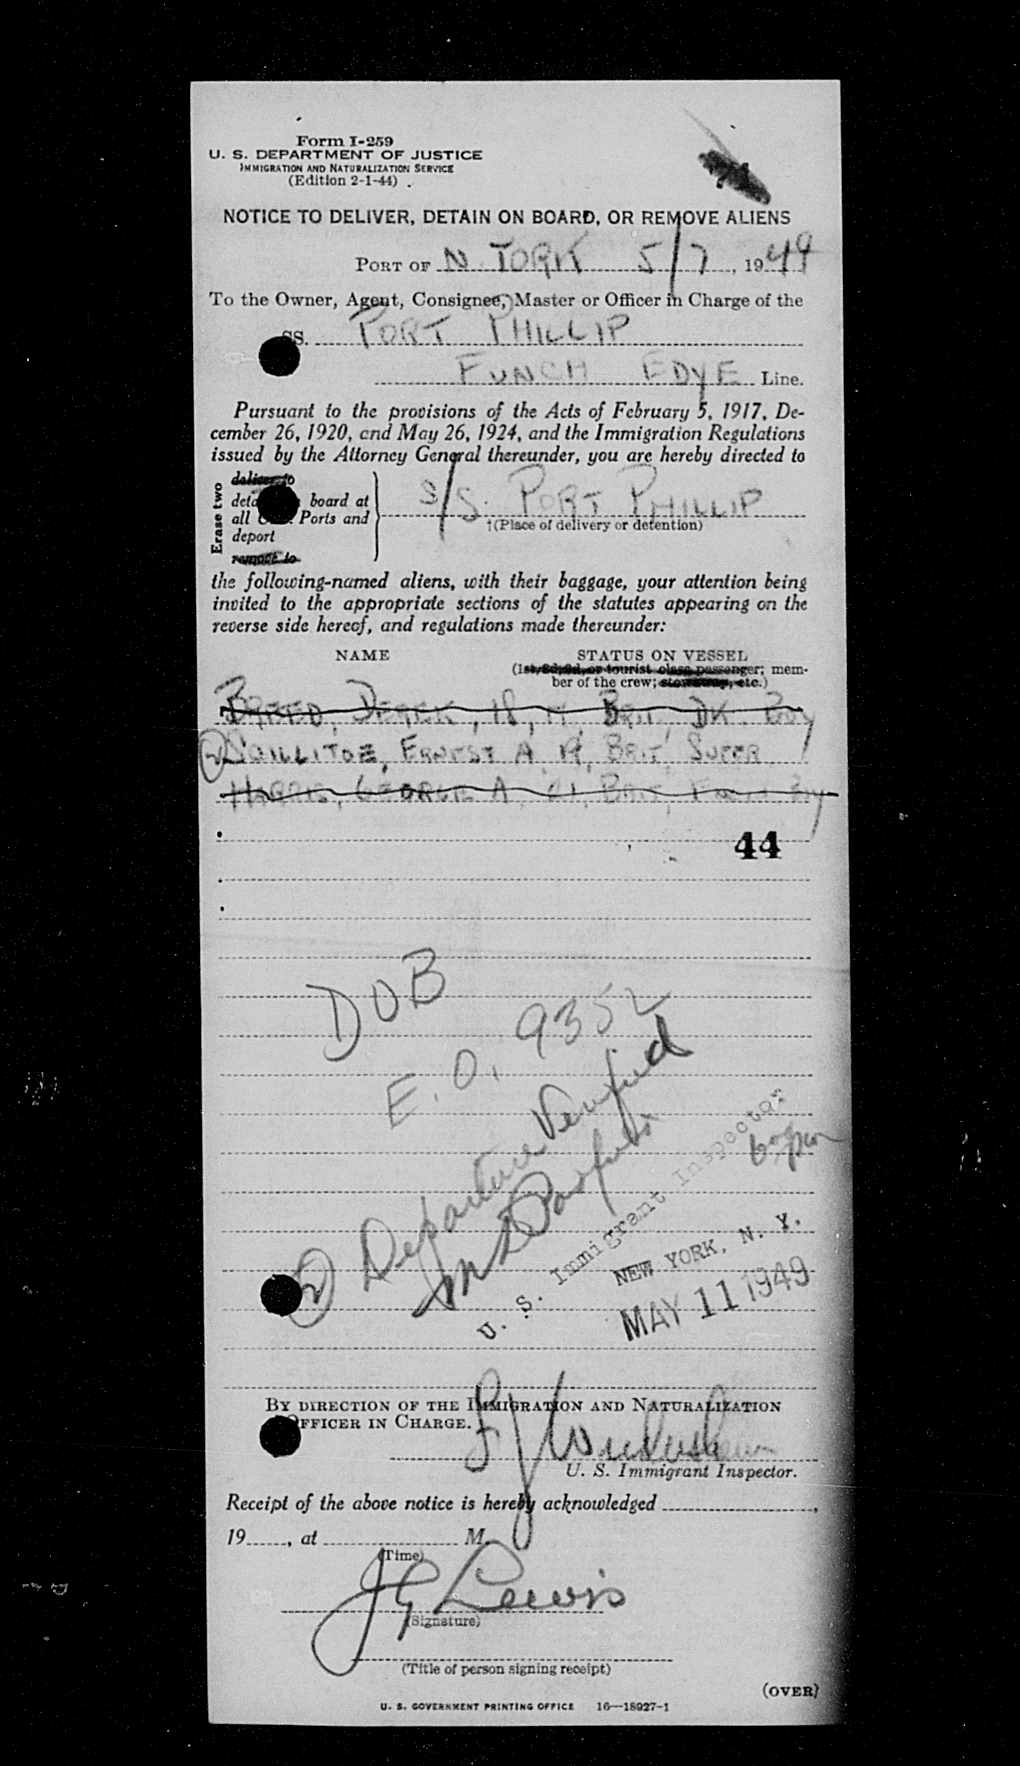 Form I-259
U. S. DEPARTMENT OF JUSTICE
IMMIGRATION AND NATURALIZATION SERVICE
(Edition 2-1-44)
NOTICE TO DELIVER, DETAIN ON BOARD, OR REMOVE ALIENS
PORT OF N. YORK 5/7, 1949
To the Owner, Agent, Consignee, Master or Officer in Charge of the
SS. PORT PHILLIP
FUNCH EDYE Line.
Pursuant to the provisions of the Acts of February 5, 1917, De-
cember 26, 1920, and May 26, 1924, and the Immigration Regulations
issued by the Attorney General thereunder, you are hereby directed to
Erase two
deliver to
board at
all Ports and
deport
remove to
S/S. PORT PHILLIP
†(Place of delivery or detention)
the following-named aliens, with their baggage, your attention being
invited to the appropriate sections of the statutes appearing on the
reverse side hereof, and regulations made thereunder:
NAME STATUS ON VESSEL
(1st, 2d, 3d, or tourist class passenger; mem-
ber of the crew; stowaway, etc.)
BREED, DEREK, 18, M, BRIT, DK. BOY
2 SQILLITOE, ERNEST A, 19, BRIT, SUPER
HARRIS, GEORGE A, 21, BRIT, BOY
44
DOB
E.O. 9352
2 Departure Verified
U. S. Immigrant Inspector
NEW YORK, N. Y.
MAY 11 1949
BY DIRECTION OF THE IMMIGRATION AND NATURALIZATION
OFFICER IN CHARGE.
U. S. Immigrant Inspector.
Receipt of the above notice is hereby acknowledged ,
19 , at M.
(Time)
J G Lewis
(Signature)
(Title of person signing receipt)
(OVER)
U. S. GOVERNMENT PRINTING OFFICE 16—18927-1